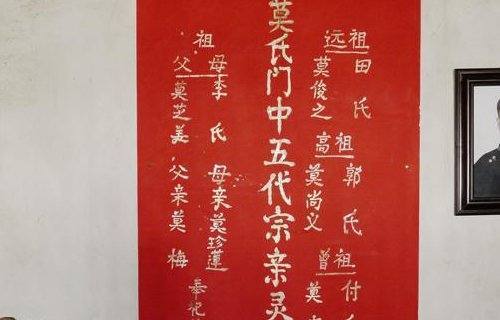 祖田氏祖郭氏祖付
远莫俊之高莫尚义曾莫
莫氏门中五代宗亲灵
祖
母李氏母亲莫珍莲
父莫芝美父亲莫梅
奉祀